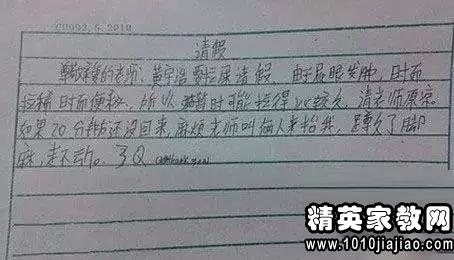 请假
尊敬亲爱的老师：黄宇浩要拉屎请假 由于屁眼发肿，时而
拉稀时而便秘，所以 时可能拉得比较久 请老师原谅
如果20分钟后还没回来，麻烦老师叫俩人来抬我，蹲久了脚
麻，走不动。3Q
精英家教网
www.1010jiajiao.com